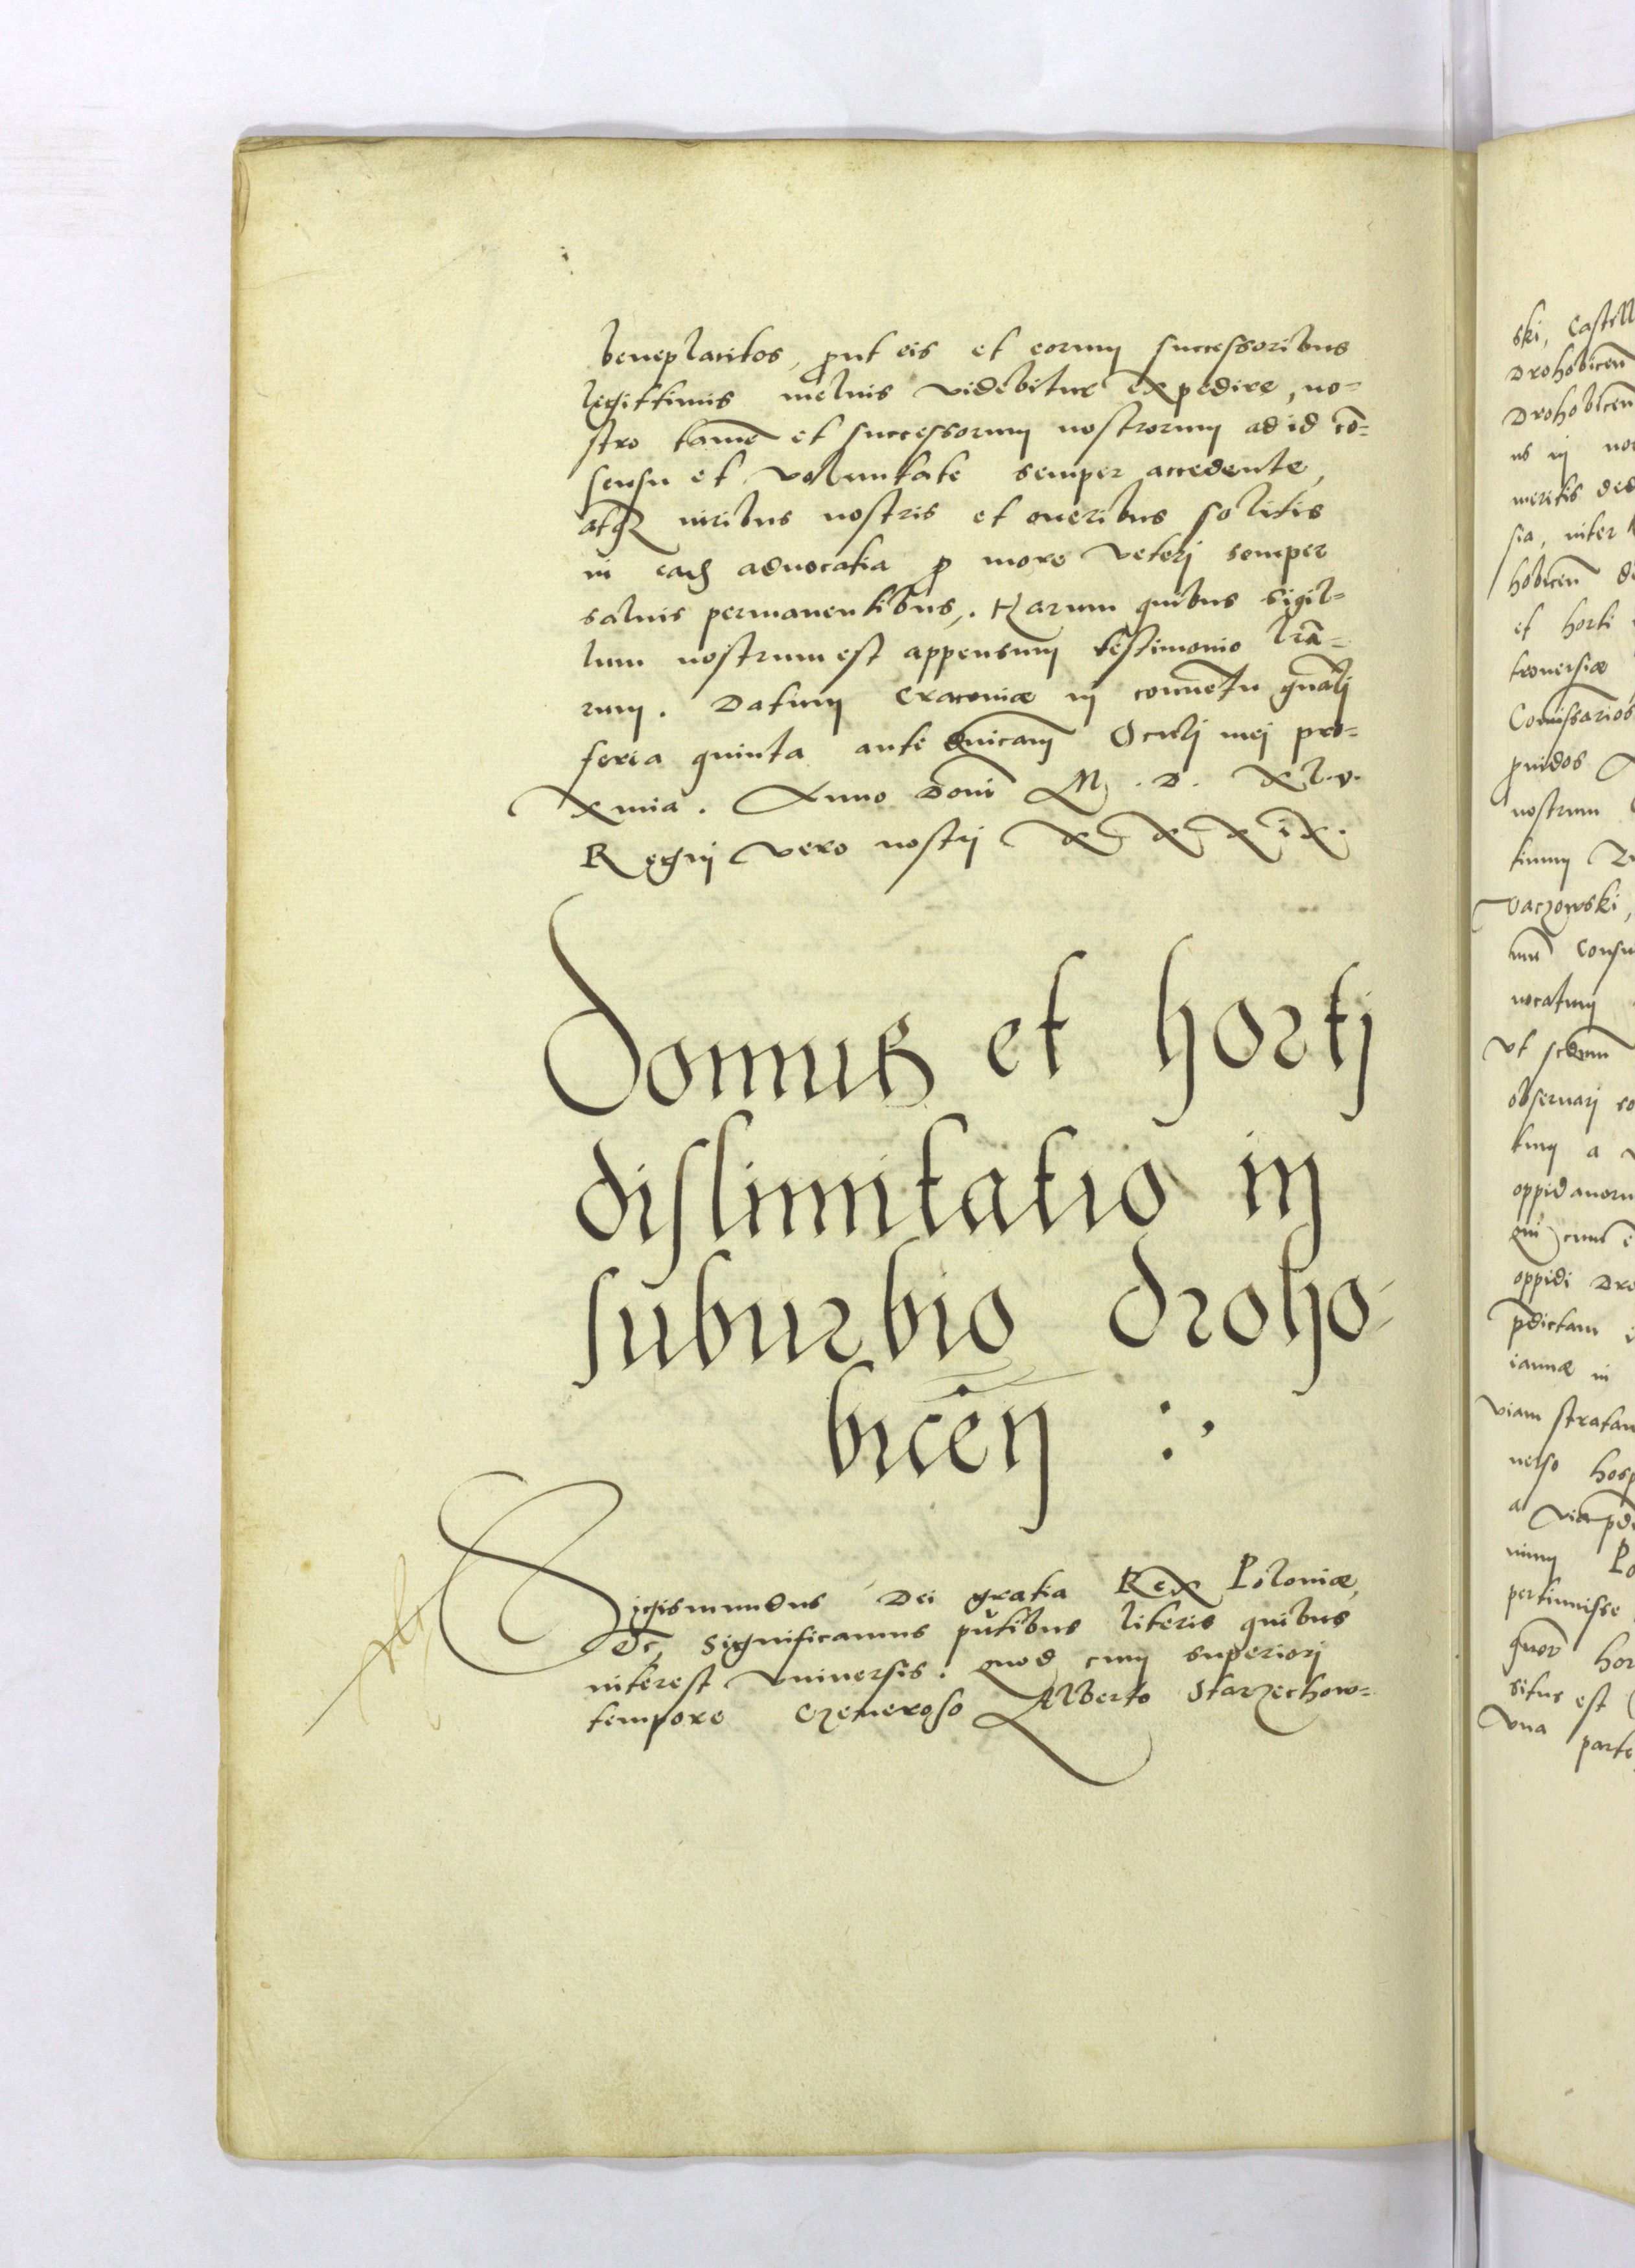 beneplacitos, ꝓut eis et eorum successoribus
legittimis melius videbitur expedire, no=
stro tamē et successorum nostrorum ad id cō=
sensu et voluntate semper accedente,
atqꝫ iuribus nostris et oneribus solitis
in eadꝫ aduocatia ꝓ more veterj semper
saluis permanentibus. Harum quibus sigil=
lum nostrum est appensum testimonio lr̄a=
rum. Datum Cracouiæ in conuētu gn̄alj
feria quinta ante dnicam̄ Oculj mej pro=
xmia. Anno Domī M. D. XL.v.
Regnj vero nostrj XXXIX.
Domus et hortj
dislimitatio in
suburbio droho=
bicēn :,
Sigismundus Dei gratia Rex Poloniæ,
etc̄, Significamus pn̄tibus literis quibus
interest vniuersis. Quod cum superiorj
tempore Generoso Alberto Starzechow=
ski, Castell
Drohobicen̄
Drohobicen̄
us in no
meritis ded
sia, inter
hobicen̄ d
et horti
trouersiæ
Com̄issarios
ꝓuidos
nostrum
tinum
vaczowski,
num̄ Consu
uocatum
vt scdum̄
obseruarj co
tum a
oppidanoru
qui cum
oppidi Dro
p̄dictam
iannæ in
viam stratam
uerso hosp
a via p̄d
nimum Po
pertinuisse
quor̄ hor
situs est
vna parte